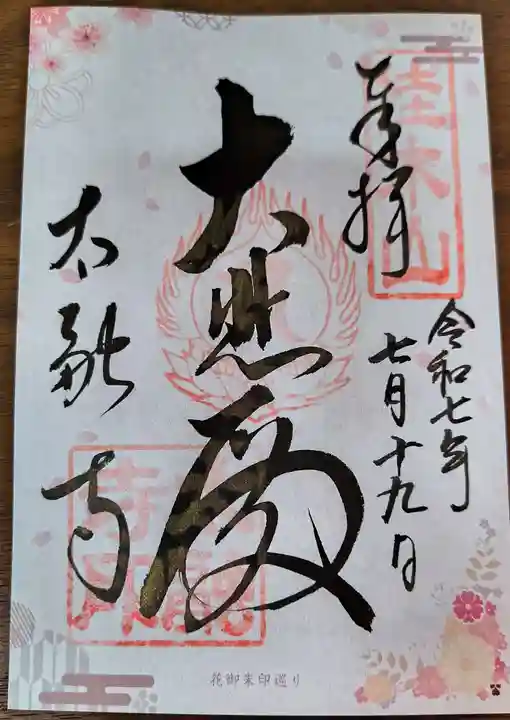 佳木山
奉拝
令和七年
七月十九日
大悲殿
太融寺
花御朱印巡り